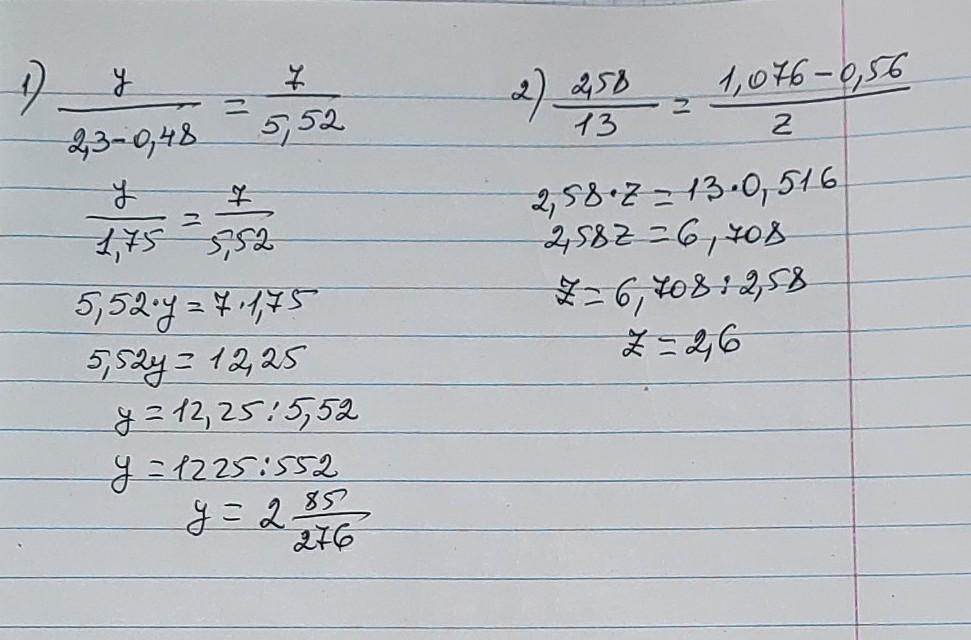 1) y/(2,3-0,48) = 7/5,52
y/1,75 = 7/5,52
5,52·y = 7·1,75
5,52y = 12,25
y = 12,25:5,52
y = 1225:552
y = 2 85/276
2) 2,58/13 = (1,076-0,56)/z
2,58·z = 13·0,516
2,58z = 6,708
z = 6,708:2,58
z = 2,6